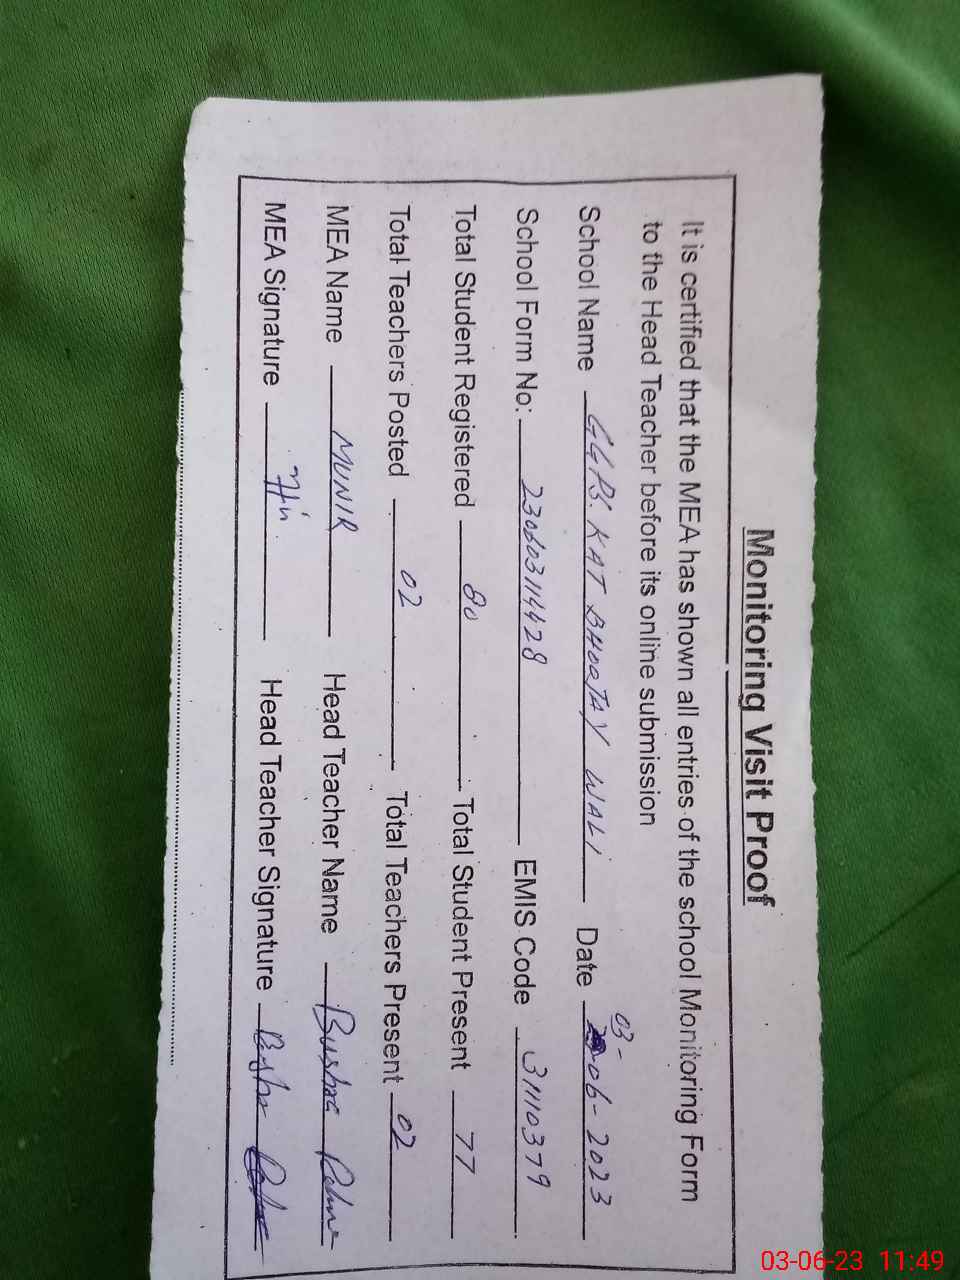 Monitoring Visit Proof
It is certified that the MEA has shown all entries of the school Monitoring Form
to the Head Teacher before its online submission
School Name GGPS. KAT BHOOTAY WALI Date 03-06-2023
School Form No: 230603114428 EMIS Code 31110379
Total Student Registered 80 Total Student Present 77
Total Teachers Posted 02 Total Teachers Present 02
MEA Name MUNIR Head Teacher Name Bushra
MEA Signature Head Teacher Signature
03-06-23 11:49